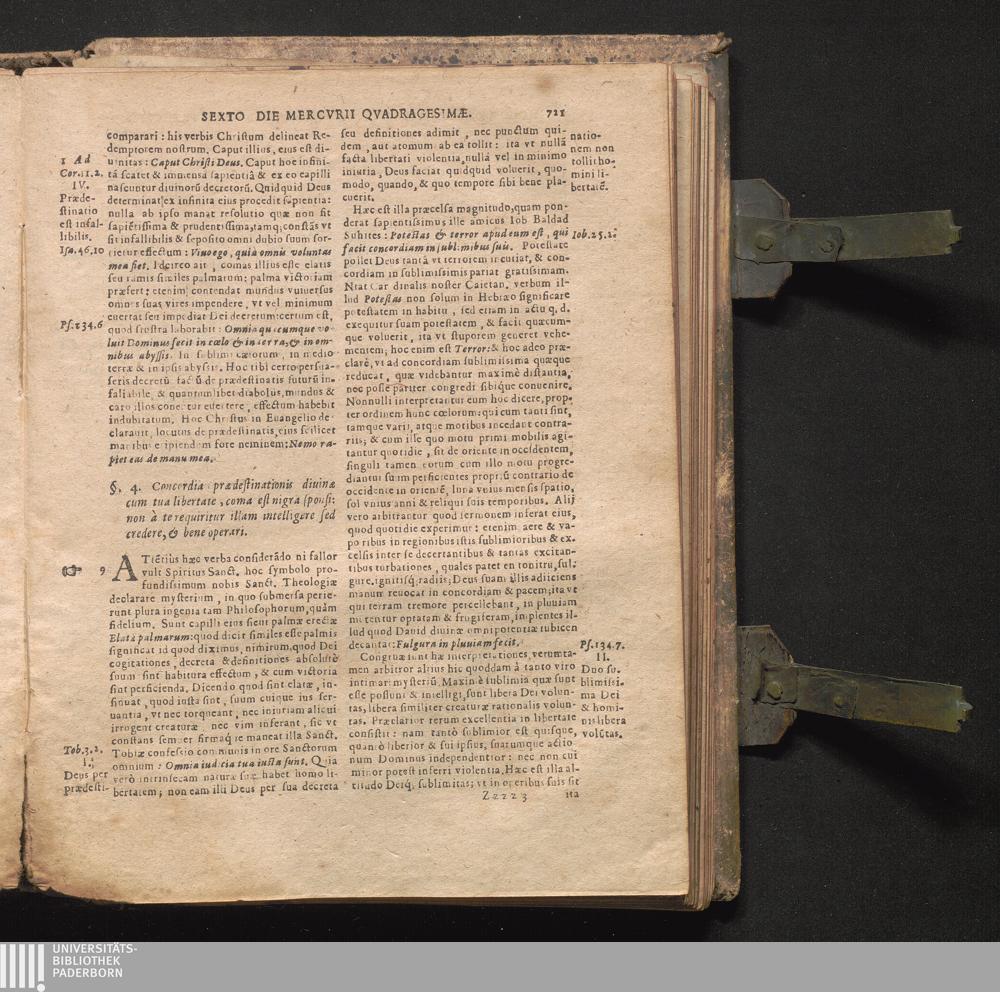 SEXTO DIE MERCVRII QVADRAGESIMÆ. 721
comparari: his verbis Christum delineat Re-
demptorem nostrum. Caput illius, eius est di-
uinitas: Caput Christi Deus. Caput hoc infini-
tá scatet & immensa sapientiâ & ex eo capilli
nascuntur diuinorũ decretorũ. Quidquid Deus
determinat, ex infinita eius procedit sapientia:
nulla ab ipso manat resolutio quæ non sit
sapiẽtissima & prudentissima, tamq; constãs vt
sit infallibilis & seposito omni dubio suum sor-
tietur effectum: Viuo ego, quia omnis voluntas
mea fiet. Idcirco ait, comas illius esse elatis
seu ramis similes palmarum: palma victoriam
præfert: etenim contendat mundus vniuersus
omnes suas vires impendere, vt vel minimum
euertat seu impediat Dei decretum: certum est,
quod frustra laborabit: Omnia quæcumque vo-
luit Dominus fecit in cœlo & in terra, & in om-
nibus abyssis. In sublimi cælorum, in medio
terræ & in ipsis abyssis. Hoc tibi certo persua-
seris decretũ factũ de prædestinatis futurũ in-
faliabile, & quantumlibet diabolus, mundus &
caro illos conetur euertere, effectum habebit
indubitatum. Hoc Christus in Euangelio de-
clarauit, locutus de prædestinatis, eius scilicet
manibus eripiendum fore neminem: Nemo ra-
piet eas de manu mea.
§. 4. Concordia prædestinationis diuinæ
cum tua libertate, coma est nigra sponsi:
non à te requiritur illam intelligere sed
credere, & bene operari.
9 ATtẽtius hæc verba considerãdo ni fallor
vult Spiritus Sanct. hoc symbolo pro-
fundissimum nobis Sanct. Theologiæ
declarare mysterium, in quo submersa perie-
runt plura ingenia tam Philosophorum, quàm
fidelium. Sunt capilli eius sicut palmæ erectæ
Elatæ palmarum: quod dicit similes esse palmis
significat id quod diximus, nimirum, quod Dei
cogitationes, decreta & definitiones absolutè
suum sint habitura effectum, & cum victoria
sint perficienda. Dicendo quod sint elatæ, in-
sinuat, quod iusta sint, suum cuique ius ser-
uantia, vt nec torqueant, nec iniuriam alicui
irrogent creaturæ, nec vim inferant, sic vt
constans semper firmaq; ie maneat illa Sanct.
Tobiæ confessio communis in ore Sanctorum
omnium: Omnia iudicia tua iusta sunt. Quia
verò intrinsecam naturæ suæ habet homo li-
bertatem; non eam illi Deus per sua decreta
1 Ad
Cor. 11. 2.
IV.
Præde-
stinatio
est infal-
libilis.
Isa. 46. 10
Ps. 134. 6
Tob. 3. 2.
I.
Deus per
prædesti-
seu definitiones adimit, nec punctum qui-
dem, aut atomum ab ea tollit: ita vt nullâ
facta libertati violentia, nullâ vel in minimo
iniuria, Deus faciat quidquid voluerit, quo-
modo, quando, & quo tempore sibi bene pla-
cuerit.
Hæc est illa præcelsa magnitudo, quam pon-
derat sapientissimus ille amicus Iob Baldad
Suhites: Potestas & terror apud eum est, qui
facit concordiam in sublimibus suis. Potestate
pollet Deus tantâ vt terrorem incutiat, & con-
cordiam in sublimissimis pariat gratissimam.
Ntat Cardinalis noster Caietan. verbum il-
lud Potestas non solum in Hebræo significare
potestatem in habitu, sed etiam in actu q. d.
exequitur suam potestatem, & facit quæcum-
que voluerit, ita vt stuporem generet vehe-
mentem; hoc enim est Terror: & hoc adeo præ-
clarè, vt ad concordiam sublimissima quæque
reducat, quæ videbantur maximè distantia,
nec posse pariter congredi sibique conuenire.
Nonnulli interpretantur eum hoc dicere, prop-
ter ordinem hunc cœlorum: qui cum tanti sint,
tamque varii, atque motibus incedant contra-
riis; & cum ille quo motu primi mobilis agi-
tantur quotidie, sit de oriente in occidentem,
singuli tamen eorum cum illo motu progre-
diantur suum perficientes propriũ contrario de
occidente in orientẽ, luna vnius mensis spatio,
sol vnius anni & reliqui suis temporibus. Alij
vero arbitrantur quod sermonem inferat eius,
quod quotidie experimur: etenim aere & va-
poribus in regionibus istis sublimioribus & ex-
celsis inter se decertantibus & tantas excitan-
tibus turbationes, quales patet en tonitru, ful-
gure, ignitisq; radiis; Deus suam illis adiiciens
manum reuocat in concordiam & pacem; ita vt
qui terram tremore percellebant, in pluuiam
mittentur optatam & frugiferam, implentes il-
lud quod Dauid diuinæ omnipotentiæ tubicen
decantat: Fulgura in pluuiam fecit.
Congruæ sunt hæ interpretationes, verumta-
men arbitror altius hic quoddam à tanto viro
intimari mysteriũ. Maximè sublimia quæ sunt
esse possunt & intelligi, sunt libera Dei volun-
tas, libera similiter creaturæ rationalis volun-
tas. Præclarior rerum excellentia in libertate
consistit: nam tantò sublimior est quisque,
quantò liberior & sui ipsius, suarumque actio-
num Dominus independentior: nec non cui
minor potest inferri violentia. Hæc est illa al-
titudo Deiq; sublimitas; vt in operibus suis sit
natio-
nem non
tollit ho-
mini li-
bertatẽ.
Iob. 25. 2.
Ps. 134. 7.
II.
Duo su-
blimissi-
ma Dei
& homi-
nis libera
volũtas.
Zzzz 3 ita
UNIVERSITÄTS-
BIBLIOTHEK
PADERBORN